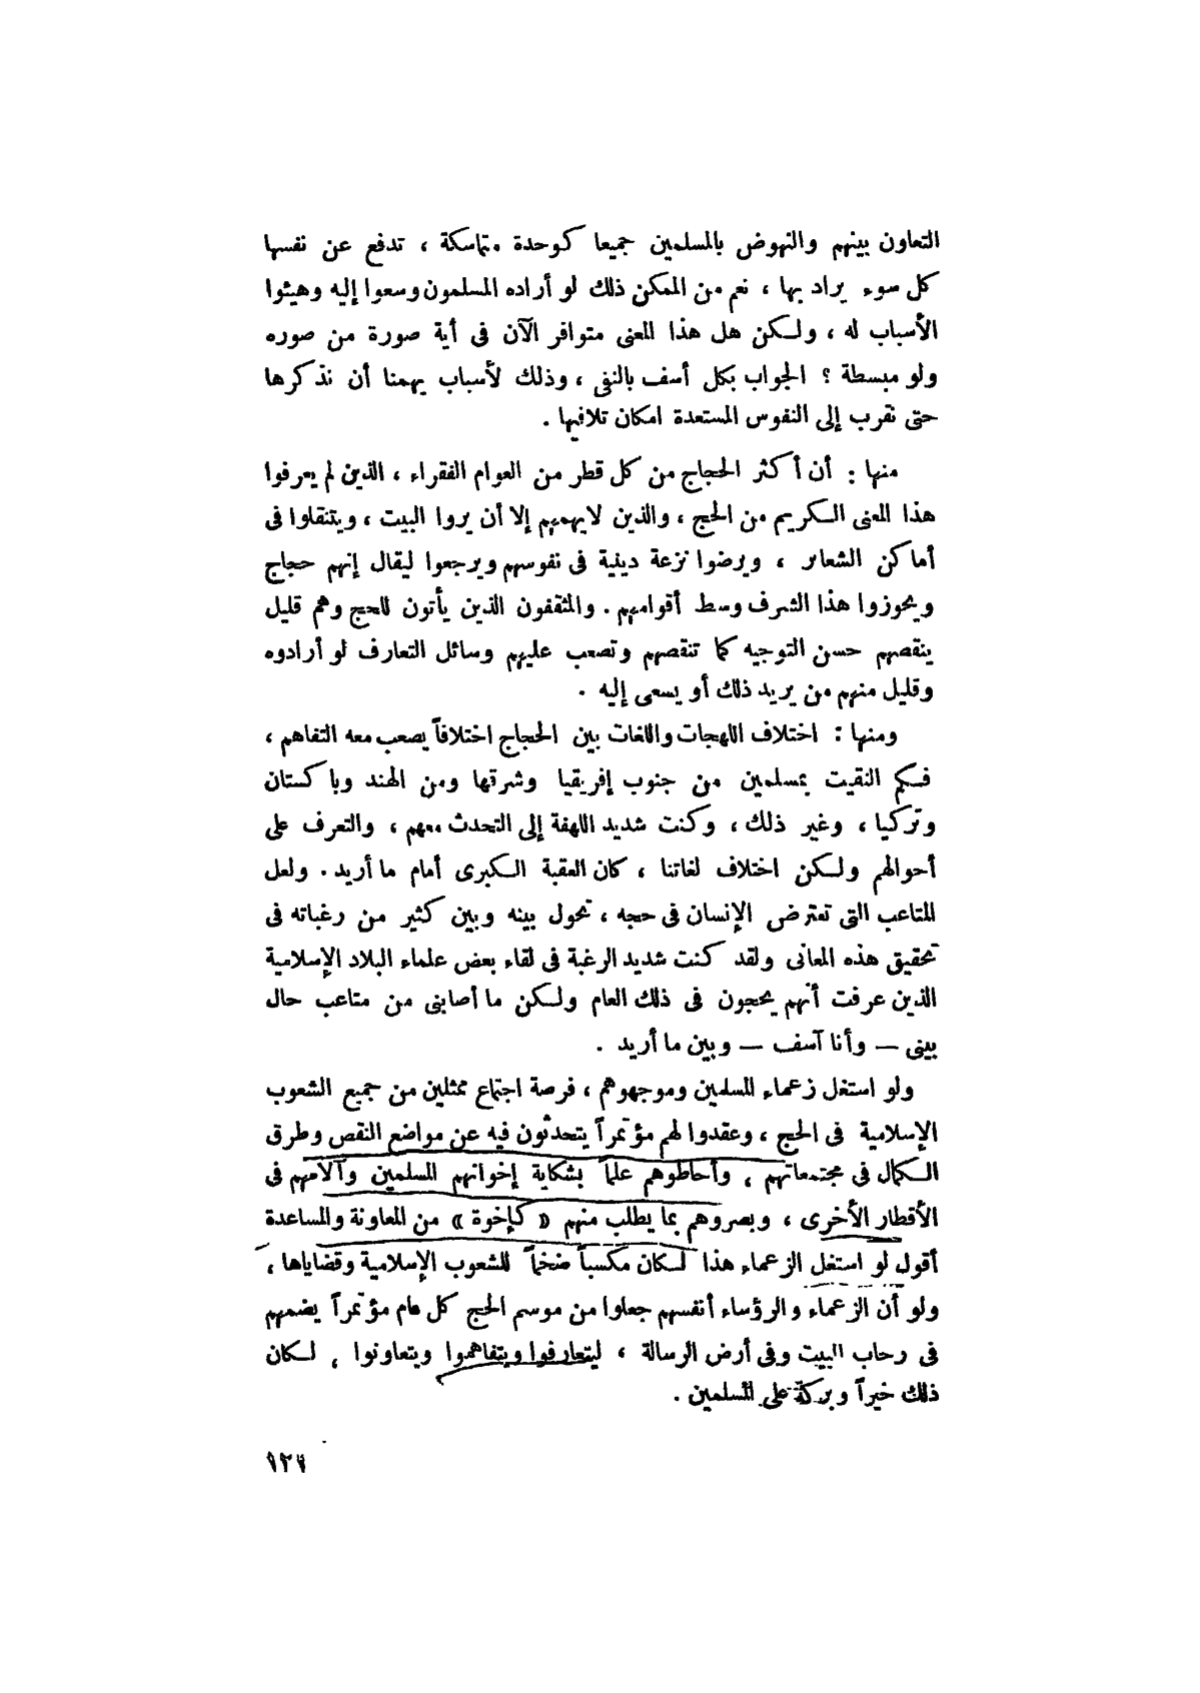 التعاون بينهم والنهوض بالمسلمين جميعا كوحدة متماسكة ، تدفع عن نفسها
كل سوء يراد بها ، نعم من الممكن ذلك لو أراده المسلمون وسعوا إليه وهيئوا
الأسباب له ، ولكن هل هذا المعنى متوافر الآن فى أية صورة من صوره
ولو مبسطة ؟ الجواب بكل أسف بالنفى ، وذلك لأسباب يهمنا أن نذكرها
حتى نقرب إلى النفوس المستعدة امكان تلافيها .
منها : أن أكثر الحجاج من كل قطر من العوام الفقراء ، الذين لم يعرفوا
هذا المعنى الكريم من الحج ، والذين لا يهمهم إلا أن يروا البيت ، ويتنقلوا فى
أماكن الشعائر ، ويرضوا نزعة دينية فى نفوسهم ويرجعوا ليقال إنهم حجاج
ويحوزوا هذا الشرف وسط أقوامهم . والمثقفون الذين يأتون للحج وهم قليل
ينقصهم حسن التوجيه كما تنقصهم وتصعب عليهم وسائل التعارف لو أرادوه
وقليل منهم من يريد ذلك أو يسعى إليه .
ومنها : اختلاف اللهجات واللغات بين الحجاج اختلافاً يصعب معه التفاهم ،
فكم التقيت بمسلمين من جنوب إفريقيا وشرقها ومن الهند وباكستان
وتركيا ، وغير ذلك ، وكنت شديد اللهفة إلى التحدث معهم ، والتعرف على
أحوالهم ولكن اختلاف لغاتنا ، كان العقبة الكبرى أمام ما أريد . ولعل
المتاعب التى تعترض الإنسان فى حجه ، تحول بينه وبين كثير من رغباته فى
تحقيق هذه المعانى ولقد كنت شديد الرغبة فى لقاء بعض علماء البلاد الإسلامية
الذين عرفت أنهم يحجون فى ذلك العام ولكن ما أصابنى من متاعب حال
بينى — وأنا آسف — وبين ما أريد .
ولو استغل زعماء المسلمين وموجهوهم ، فرصة اجتماع ممثلين من جميع الشعوب
الإسلامية فى الحج ، وعقدوا لهم مؤتمراً يتحدثون فيه عن مواضع النقص وطرق
الكمال فى مجتمعاتهم ، وأحاطوهم علماً بشكاية إخوانهم المسلمين وآلامهم فى
الأقطار الأخرى ، وبصروهم بما يطلب منهم « كإخوة » من المعاونة والمساعدة
أقول لو استغل الزعماء هذا لكان مكسباً ضخماً للشعوب الإسلامية وقضاياها ،
ولو أن الزعماء والرؤساء أنفسهم جعلوا من موسم الحج كل عام مؤتمراً يضمهم
فى رحاب البيت وفى أرض الرسالة ، ليتعارفوا ويتفاهموا ويتعاونوا ، لكان
ذلك خيراً وبركة على المسلمين .